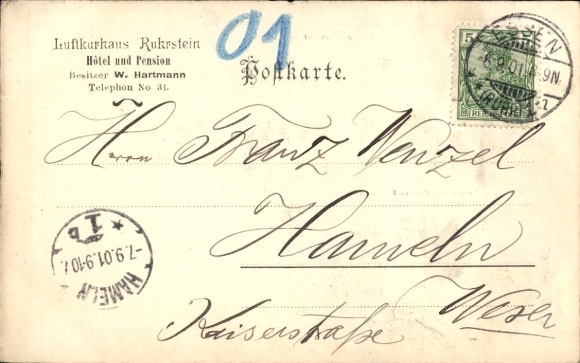 Luftkurhaus Ruhrstein
Hôtel und Pension
Besitzer W. Hartmann
Telephon No. 31.
01
Postkarte.
5
REICHSPOST
ESSEN
6.9.01. 8-9N.
(RUHR)
Herrn Franz Wenzel
Hameln
Weser
Kaiserstraße
HAMELN
-7.9.01.9-10
1b